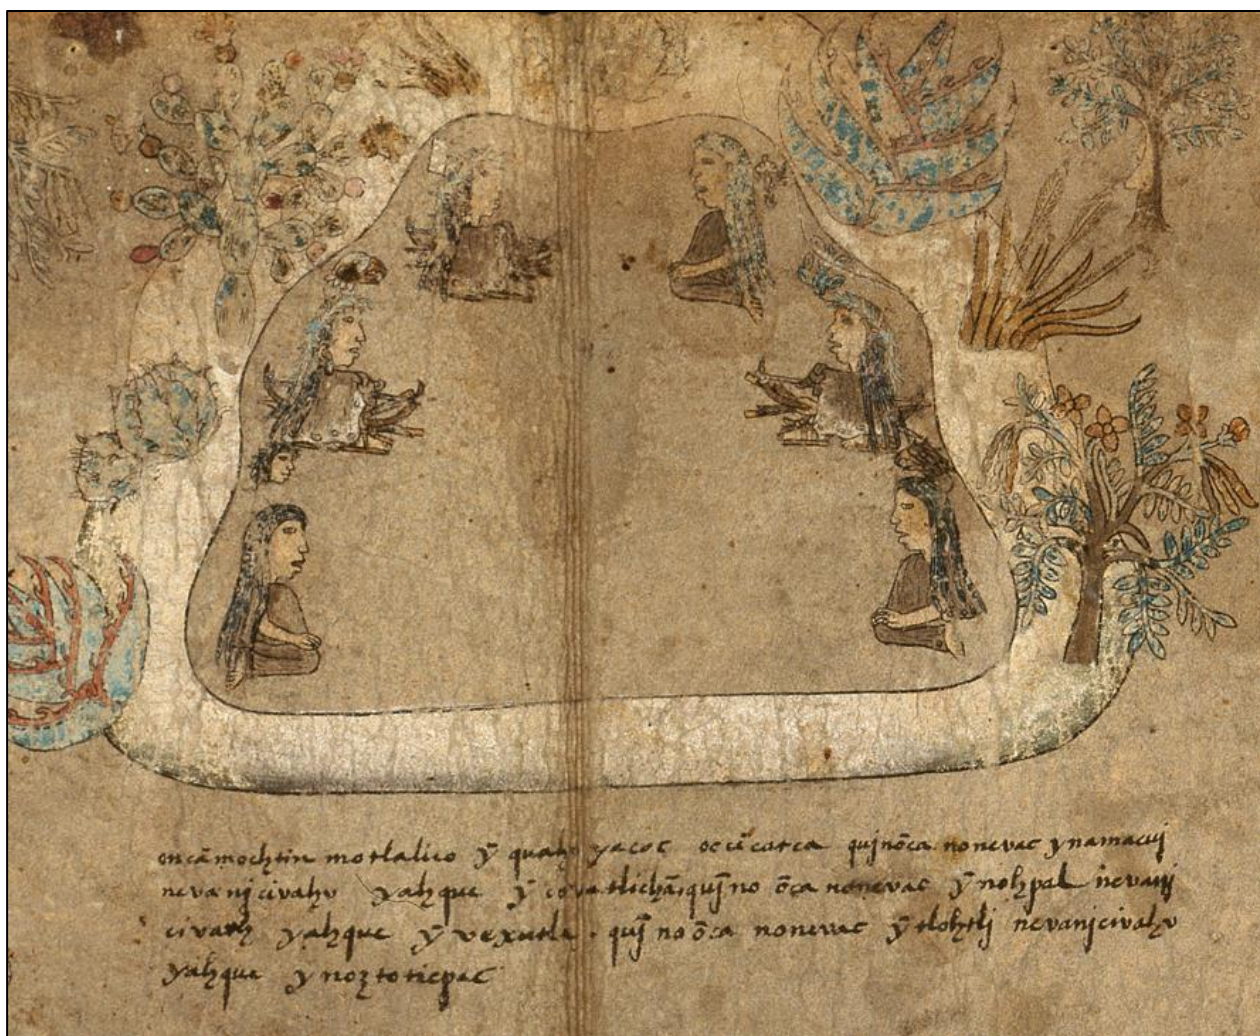 oncā mochtin motlalico ȳ quauhyacac occēcatca quinōca nonevac ynamacuj
nevanjcivahv yahque ȳ covatlichā, quȷ̄no ōca nonevac ȳ nohpal nevanj
civatl yahque ȳ vexutla . quȷ̄ no ōca nonevac ȳ tlohtlj nevanjcivahv
yahque ynoztoticpac